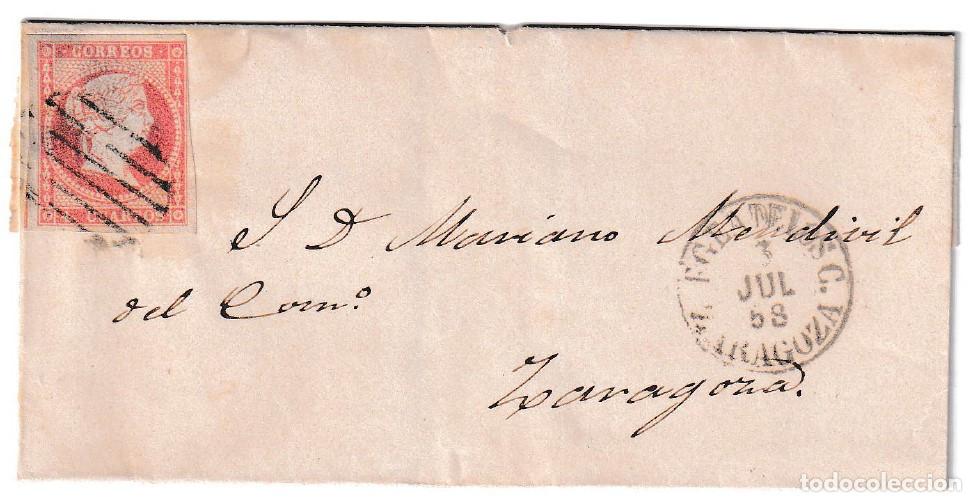 CORREOS
CUARTOS
S. D. Mariano Mendivil
del Com.º
Zaragoza.
3
JUL
58
ZARAGOZA
todocoleccion